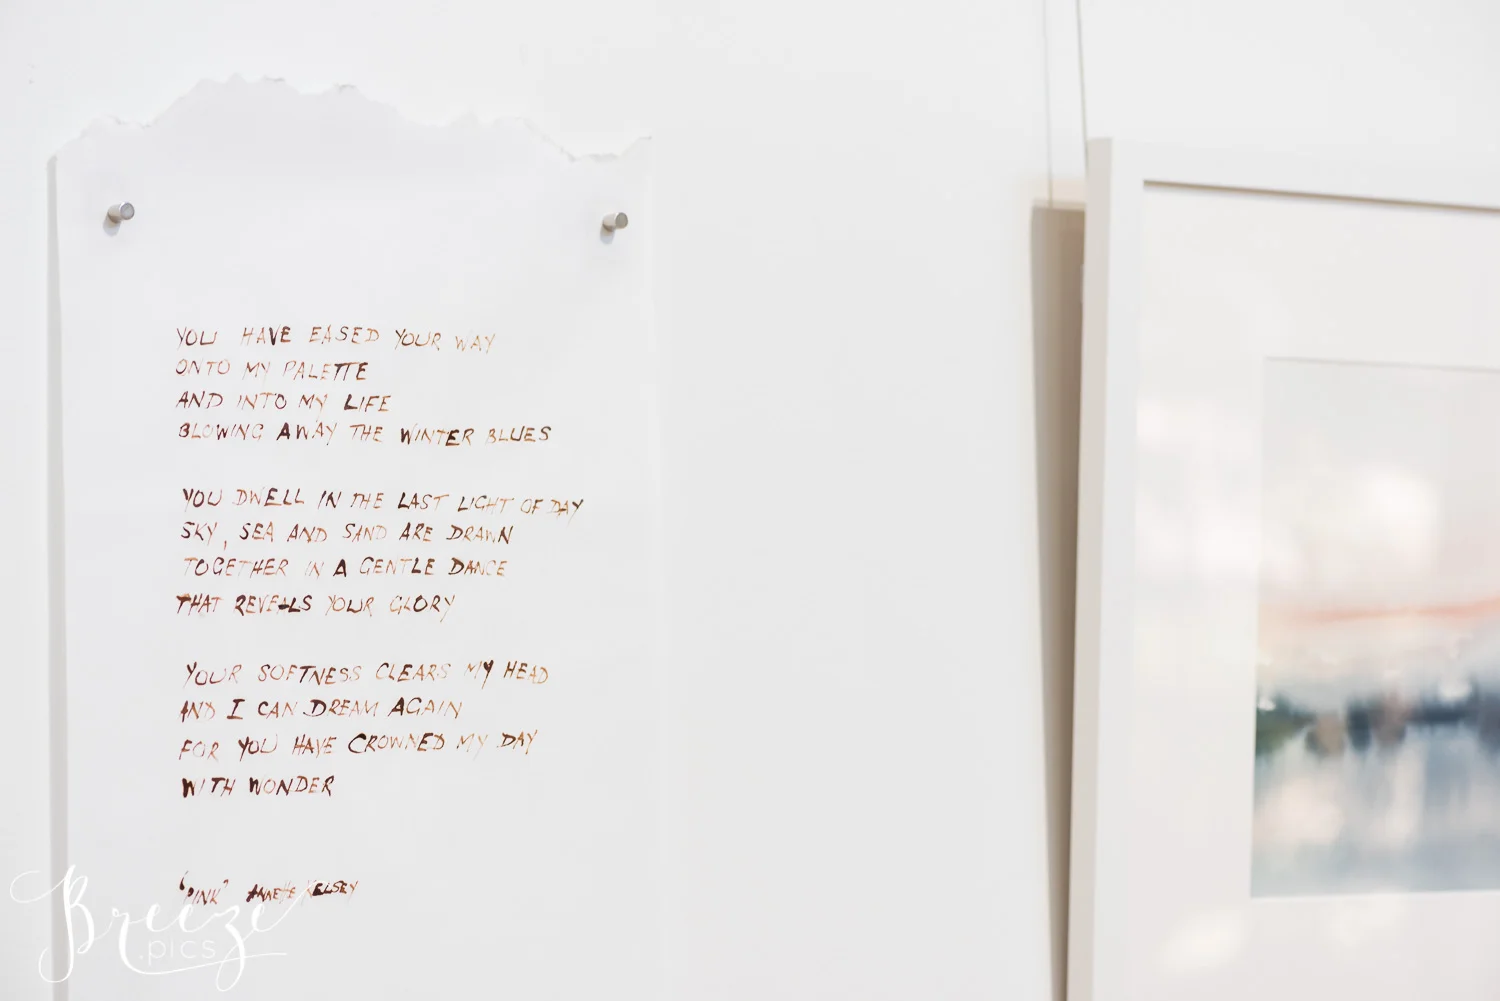 YOU HAVE EASED YOUR WAY
ONTO MY PALETTE
AND INTO MY LIFE
BLOWING AWAY THE WINTER BLUES
YOU DWELL IN THE LAST LIGHT OF DAY
SKY, SEA AND SAND ARE DRAWN
TOGETHER IN A GENTLE DANCE
THAT REVEALS YOUR GLORY
YOUR SOFTNESS CLEARS MY HEAD
AND I CAN DREAM AGAIN
FOR YOU HAVE CROWNED MY DAY
WITH WONDER
'PINK' ANNETTE KELSEY
Breeze
.pics